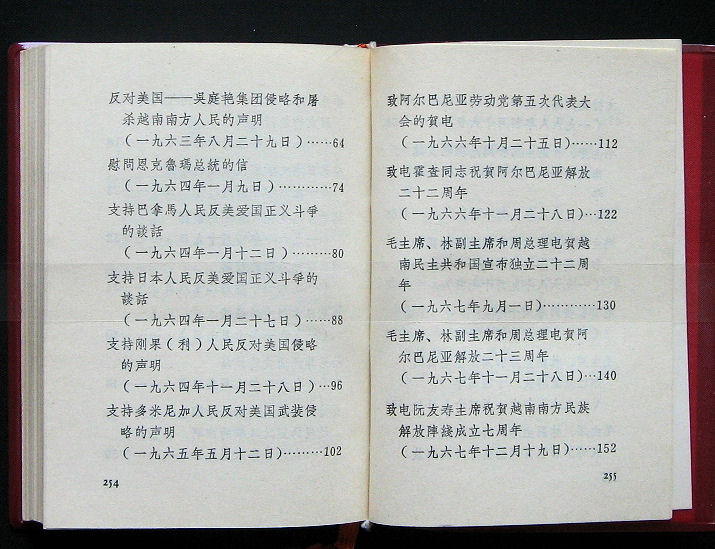 反对美国——吳庭艳集团侵略和屠
杀越南南方人民的声明
(一九六三年八月二十九日)……64
慰問恩克魯瑪总統的信
(一九六四年一月九日)…………74
支持巴拿馬人民反美爱国正义斗爭
的談話
(一九六四年一月十二日)………80
支持日本人民反美爱国正义斗爭的
談話
(一九六四年一月二十七日)……88
支持刚果(利)人民反对美国侵略
的声明
(一九六四年十一月二十八日)…96
支持多米尼加人民反对美国武装侵
略的声明
(一九六五年五月十二日)………102
254
致阿尔巴尼亚劳动党第五次代表大
会的賀电
(一九六六年十月二十五日)……112
致电霍查同志祝賀阿尔巴尼亚解放
二十二周年
(一九六六年十一月二十八日)…122
毛主席、林副主席和周总理电贺越
南民主共和国宣布独立二十二周
年
(一九六七年九月一日)…………130
毛主席、林副主席和周总理电賀阿
尔巴尼亚解放二十三周年
(一九六七年十一月二十八日)…140
致电阮友寿主席祝賀越南南方民族
解放陣綫成立七周年
(一九六七年十二月十九日)……152
255